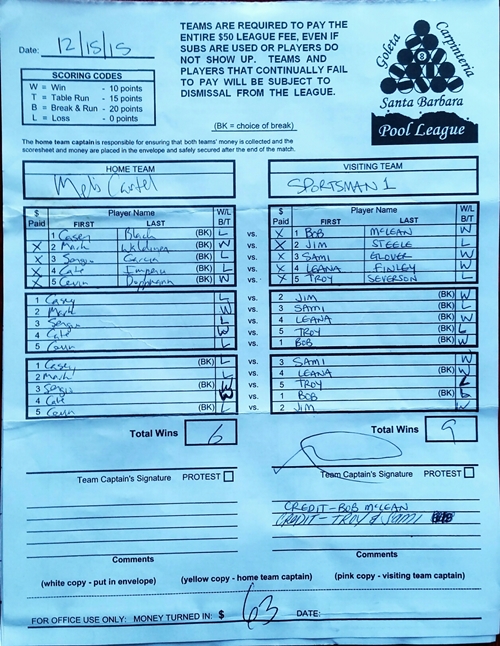 Date: 12/15/15
TEAMS ARE REQUIRED TO PAY THE
ENTIRE $50 LEAGUE FEE, EVEN IF
SUBS ARE USED OR PLAYERS DO
NOT SHOW UP. TEAMS AND
PLAYERS THAT CONTINUALLY FAIL
TO PAY WILL BE SUBJECT TO
DISMISSAL FROM THE LEAGUE.
(BK = choice of break)
SCORING CODES
W = Win - 10 points
T = Table Run - 15 points
B = Break & Run - 20 points
L = Loss - 0 points
Goleta
Carpinteria
8
Santa Barbara
Pool League
The home team captain is responsible for ensuring that both teams' money is collected and the
scoresheet and money are placed in the envelope and safely secured after the end of the match.
HOME TEAM
VISITING TEAM
SPORTSMAN 1
$ Paid Player Name FIRST LAST W/L B/T
$ Paid Player Name FIRST LAST W/L B/T
1 Casey Black (BK) L vs. X 1 BOB McLEAN W
X 2 Mark W vs. X 2 JIM STEELE (BK) L
X 3 Sergio Garcia (BK) L vs. X 3 SAMI GLOVER W
X 4 L vs. X 4 LEANA FINLEY (BK) W
X 5 (BK) W vs. X 5 TROY SEVERSON L
1 Casey L vs. 2 JIM (BK) W
2 Mark (BK) W vs. 3 SAMI L
3 Sergio L vs. 4 LEANA (BK) W
4 (BK) W vs. 5 TROY L
5 L vs. 1 BOB (BK) W
1 Casey (BK) L vs. 3 SAMI W
2 Mark L vs. 4 LEANA (BK) W
3 Sergio (BK) W vs. 5 TROY L
4 W vs. 1 BOB (BK) L
5 (BK) L vs. 2 JIM W
Total Wins 6
Total Wins 9
Team Captain's Signature PROTEST
Team Captain's Signature PROTEST
CREDIT-BOB McLEAN
CREDIT-TROY & SAMI
Comments
Comments
(white copy - put in envelope) (yellow copy - home team captain) (pink copy - visiting team captain)
FOR OFFICE USE ONLY: MONEY TURNED IN: $ 63 DATE: